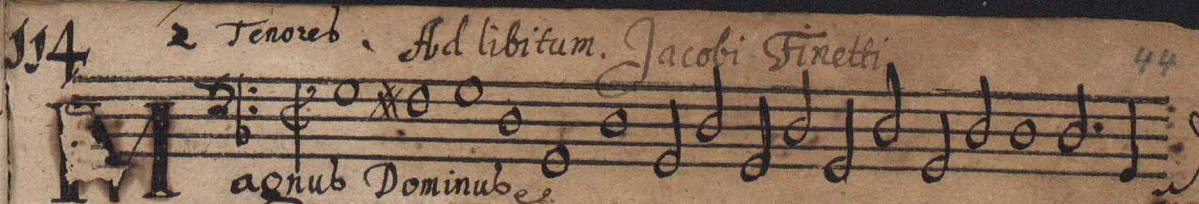 114 2 Tenores. Ad libitum. Jacobi Finetti 44
Magnus Dominus